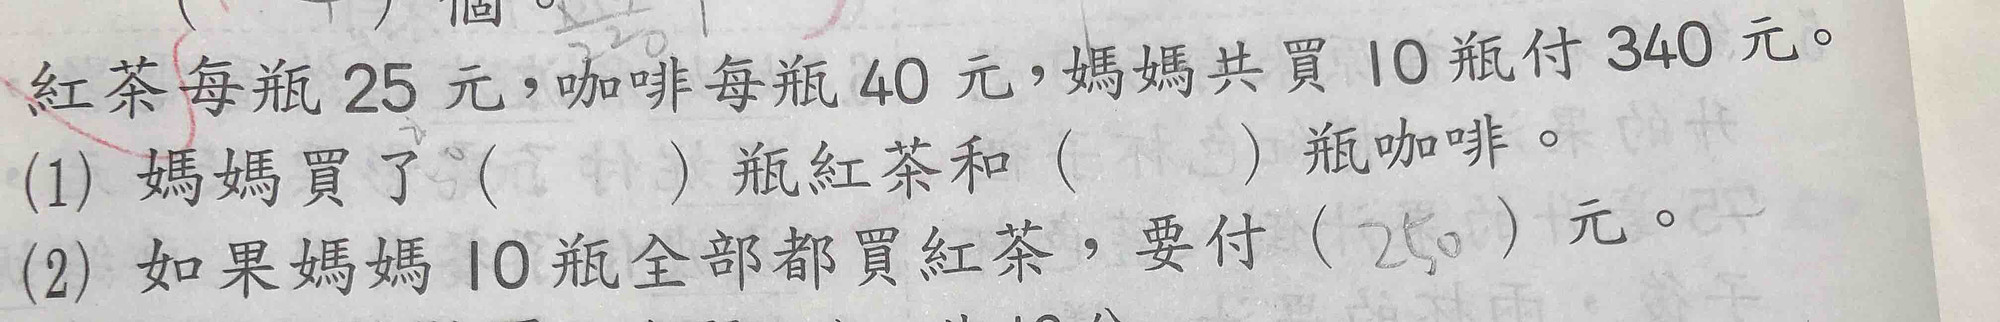 個。
220
紅茶每瓶 25 元，咖啡每瓶 40 元，媽媽共買 10 瓶付 340 元。
(1) 媽媽買了（ ）瓶紅茶和（ ）瓶咖啡。
(2) 如果媽媽 10 瓶全部都買紅茶，要付（250）元。